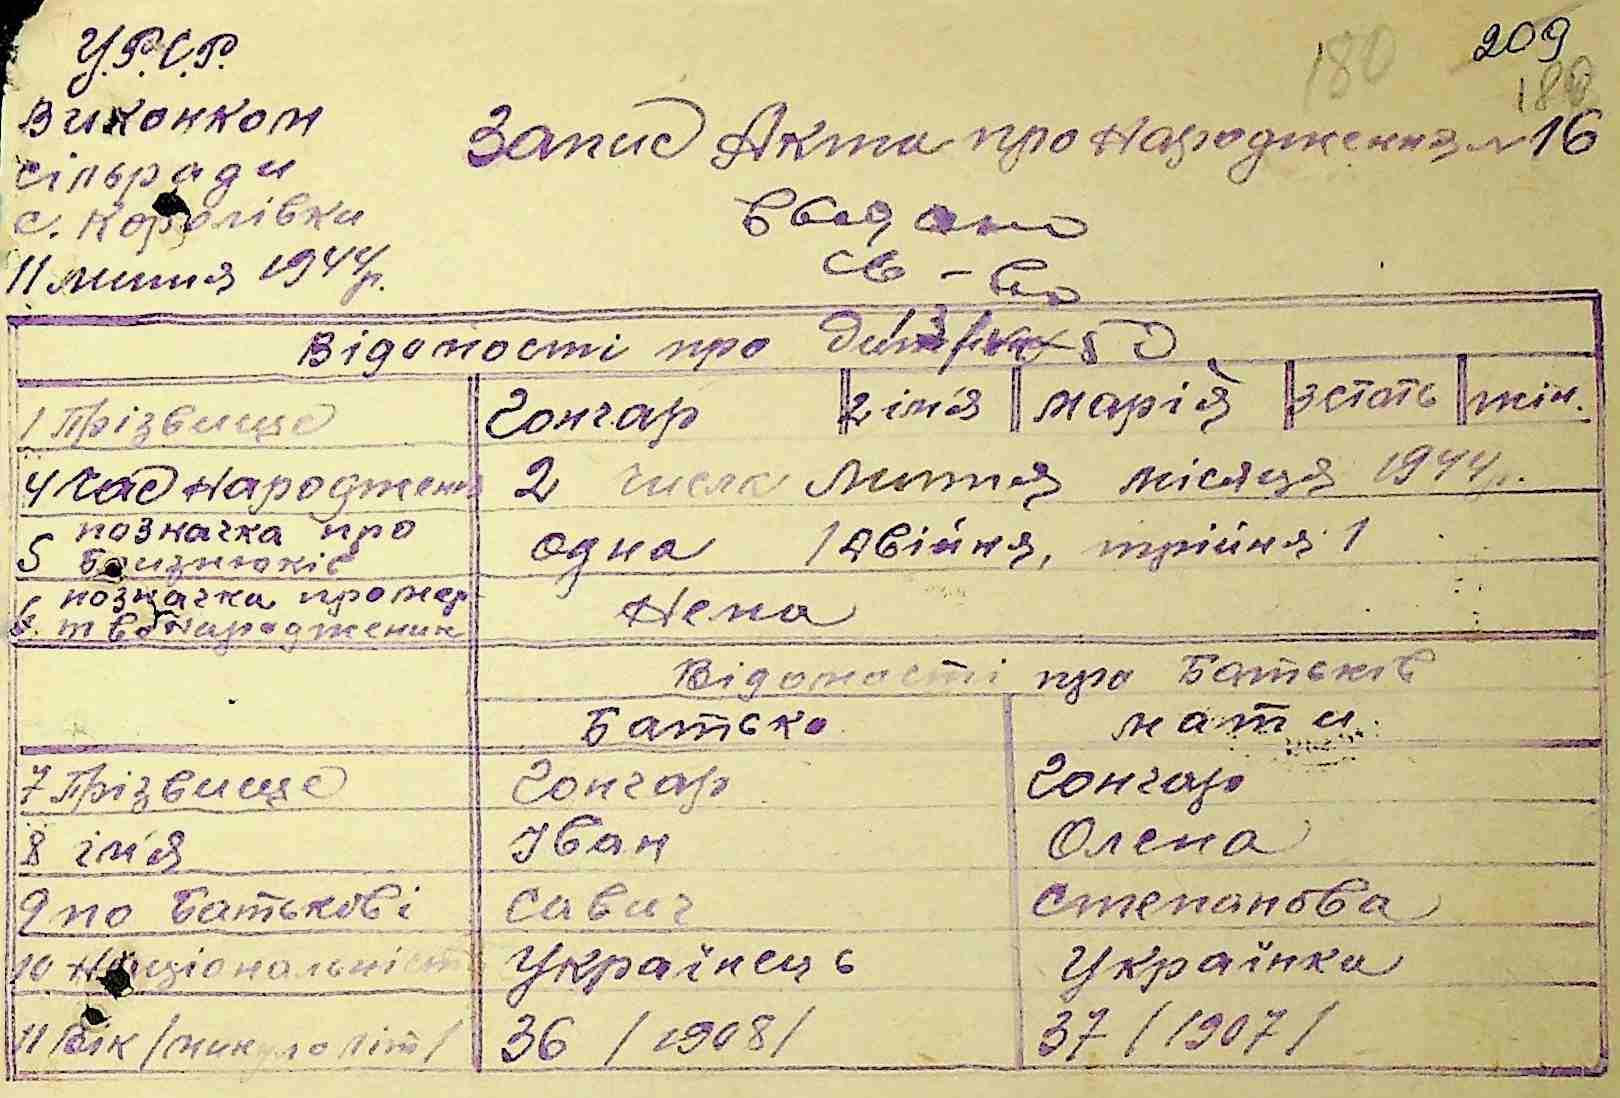 У.Р.С.Р.
Виконком
сільради
с. Королівки
11 липня 1944 р.
209
180
180
Запис Акта про народження № 16
Видано
св-во
Відомості про
1 Прізвище Гончар 2 ім'я Марія 3 стать жін.
4 Час народження 2 числа Липня місяця 1944 р.
5 позначка про близнюків одна / двійня, трійня /
6. позначка про мертвонародження Нема
Відомості про Батьків
Батько мати
7 Прізвище Гончар Гончар
8 ім'я Іван Олена
9 по Батькові Савич Степановa
10 Національність Українець Українка
11 Вік / минуло літ / 36 / 1908 / 37 / 1907 /